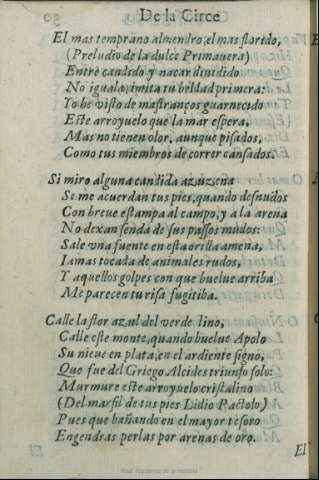 De la Circe
El mas temprano almendro, el mas florido,
(Preludio de la dulce Primauera)
Entre candido y nacar diuidido
No iguala, imita tu beldad primera:
Yo he visto de mastranços guarnecido
Este arroyuelo que la mar espera,
Mas no tienen olor, aunque pisados,
Como tus miembros de correr cansados.
Si miro alguna candida azuzena
Se me acuerdan tus pies, quando desnudos
Con breue estampa al campo, y a la arena
No dexan senda de sus passos mudos:
Sale vna fuente en esta orilla amena,
Iamas tocada de animales rudos,
Y aquellos golpes con que buelue arriba
Me parecen tu risa fugitiba.
Calle la flor azul del verde lino,
Calle este monte, quando buelue Apolo
Su nieue en plata, en el ardiente signo,
Que fue del Griego Alcides triunfo solo:
Murmure este arroyuelo cristalino
(Del marfil de tus pies Lidio Pactolo)
Pues que bañando en el mayor tesoro
Engendras perlas por arenas de oro.
El
Real Academia de la Historia